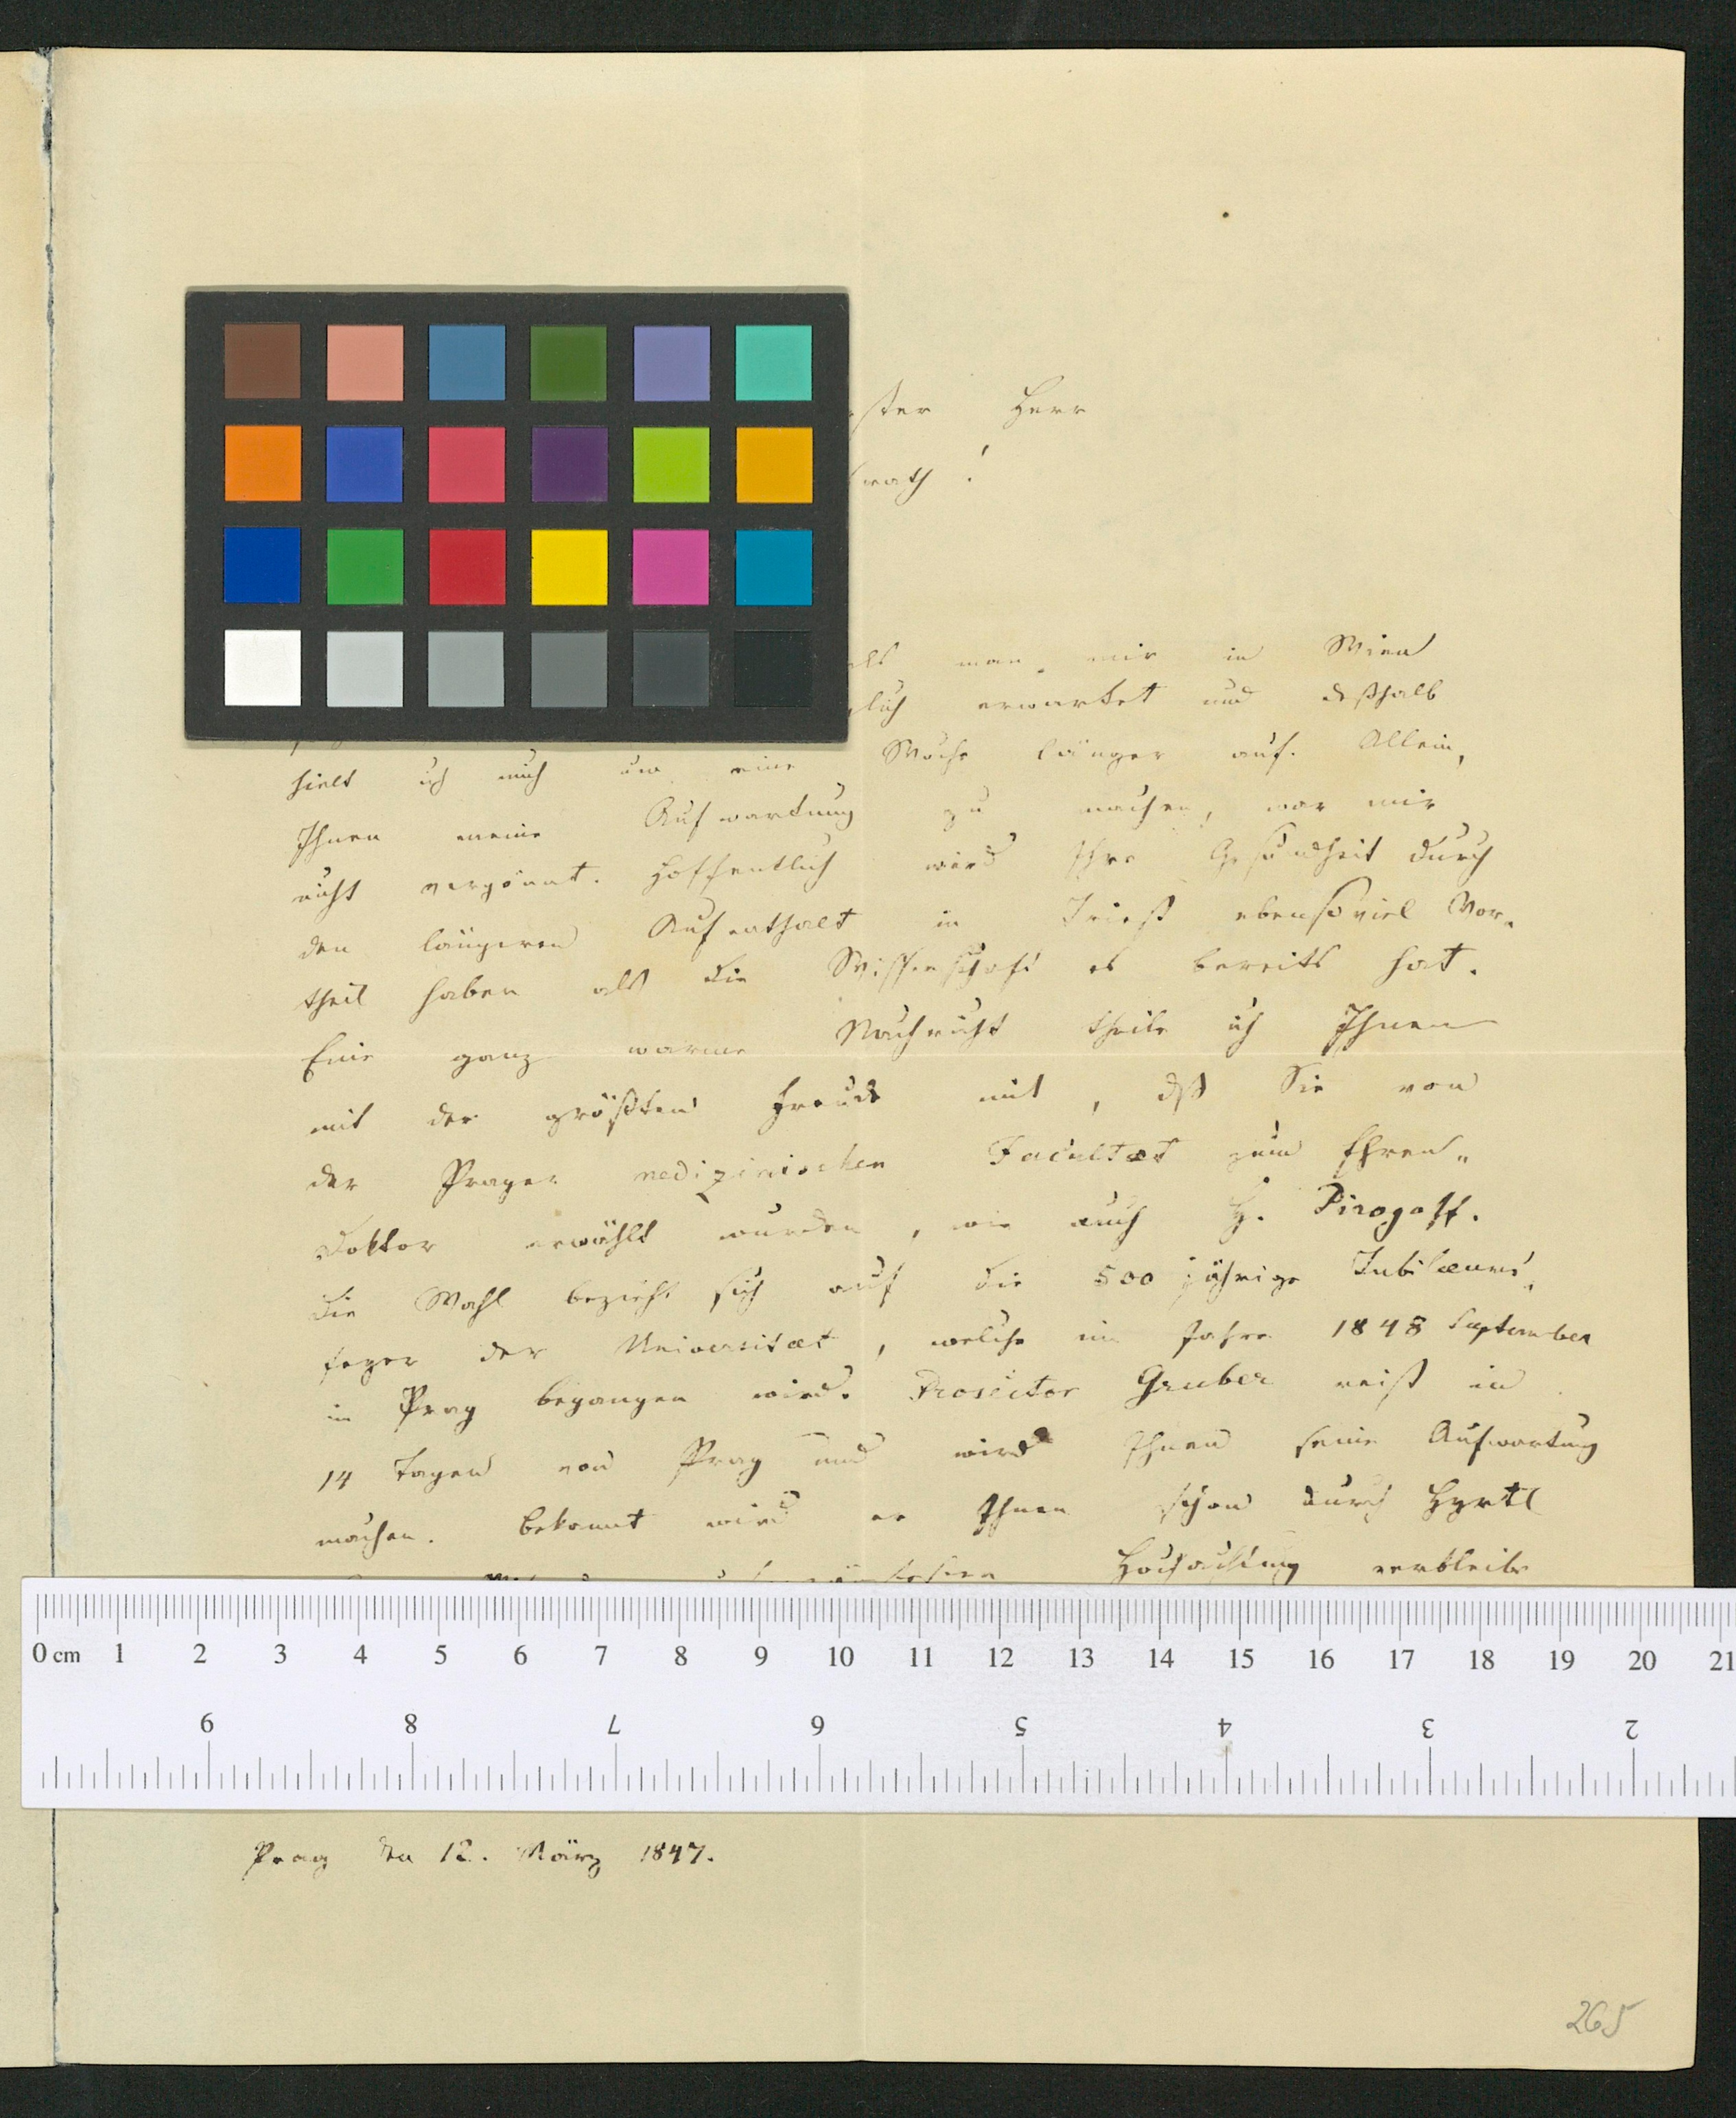 ster Herr
rath!
als man mir in Wien
lich erwartet und deßhalb
hielt ich mich um eine Woche länger auf. Allein,
Ihnen meine Aufwartung zu machen, war mir
nicht vergönnt. Hoffentlich wird Ihre Gesundheit durch
den längeren Aufenthalt in Triest ebensoviel Vor-
theil haben als die Wissenschaft es bereits hat.
Eine ganz warme Nachricht theile ich Ihnen
mit der größten Freude mit, dß Sie von
der Prager medizinischen Facultæt zum Ehren-
doktor erwählt wurden, wie auch H. Pirogoff.
Die Wahl bezieht sich auf die 500 jährige Jubilæums-
feyer der Universitæt, welche im Jahre 1848 September
in Prag begangen wird. Prosector Gruber reist in
14 Tagen von Prag und wird Ihnen seine Aufwartung
machen. Bekannt wird er Ihnen schon durch Hyrtl
Hochachtung verbleibe
0 cm 1 2 3 4 5 6 7 8 9 10 11 12 13 14 15 16 17 18 19 20 21
9 8 7 6 5 4 3 2
Prag den 12. März 1847.
265